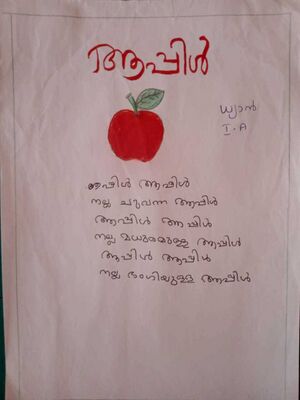 ആപ്പിൾ
ധ്യാൻ
I.A
ആപ്പിൾ ആപ്പിൾ
നല്ല ചുവന്ന ആപ്പിൾ
ആപ്പിൾ ആപ്പിൾ
നല്ല മധുരമുള്ള ആപ്പിൾ
ആപ്പിൾ ആപ്പിൾ
നല്ല ഭംഗിയുള്ള ആപ്പിൾ